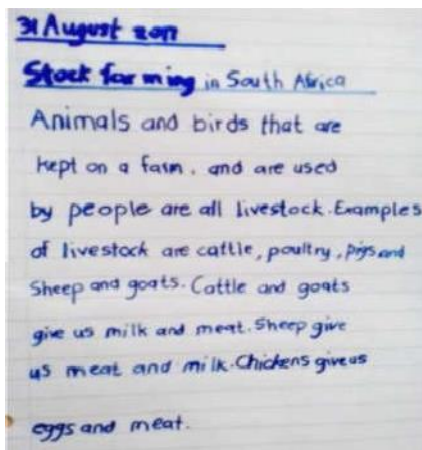 31 August 2017
Stock farming in South Africa
Animals and birds that are
kept on a farm, and are used
by people are all livestock. Examples
of livestock are cattle, poultry, pigs and
Sheep and goats. Cattle and goats
give us milk and meat. Sheep give
us meat and milk. Chickens give us
eggs and meat.